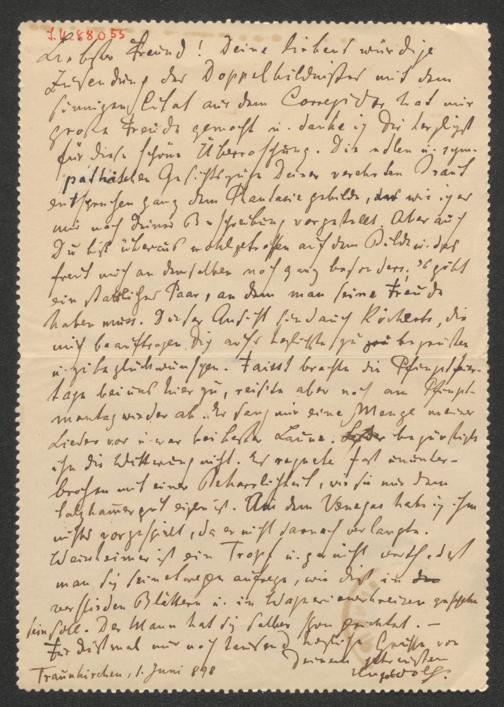 I.N. 88055
Liebster Freund! Deine liebenswürdige
Zusendung des Doppelbildnisses mit dem
sinnigen Citat aus dem Corregidor hat mir
große Freude gemacht u. danke ich Dir herzlichst
für diese schöne Überraschung. Die edlen u. sym-
pathischen Gesichtszüge Deiner verehrten Braut
entsprechen ganz dem Phantasiegebilde, wie ich es
mir nach Deiner Beschreibung vorgestellt. Aber auch
Du bist überaus wohlgetroffen auf dem Bilde u. das
freut mich an demselben noch ganz besonders. 's gibt
ein stattliches Paar, an dem man seine Freude
haben muss. Dieser Ansicht sind auch Köcherts, die
mich beauftragen Dich aufs herzlichste zu begrüßen
u. zu beglückwünschen. Faisst brachte die Pfingstfeier-
tage bei uns hier zu, reiste aber noch am Pfingst-
montag wieder ab. Er sang mir eine Menge meiner
Lieder vor u. war bei bester Laune. begünstigte
ihn die Witterung nicht. Es regnete fast ununter-
brochen mit einer Beharrlichkeit, wie sie nur dem
Salzkammergut eigen ist. Aus dem Venegas habe ich ihm
nichts vorgespielt, da er nicht darnach verlangte.
Weinheimer ist ein Tropf u. gar nicht werth, daß
man sich seinetwegen aufrege, wie dieß in
verschieden Blättern u. in Wagnerianerkreisen geschehen
sein soll. Der Mann hat sich selber schon gerichtet. —
Für dießmal nur noch tausend herzliche Grüße von
Deinem getreusten
Traunkirchen, 1. Juni 898 Hugo Wolf.